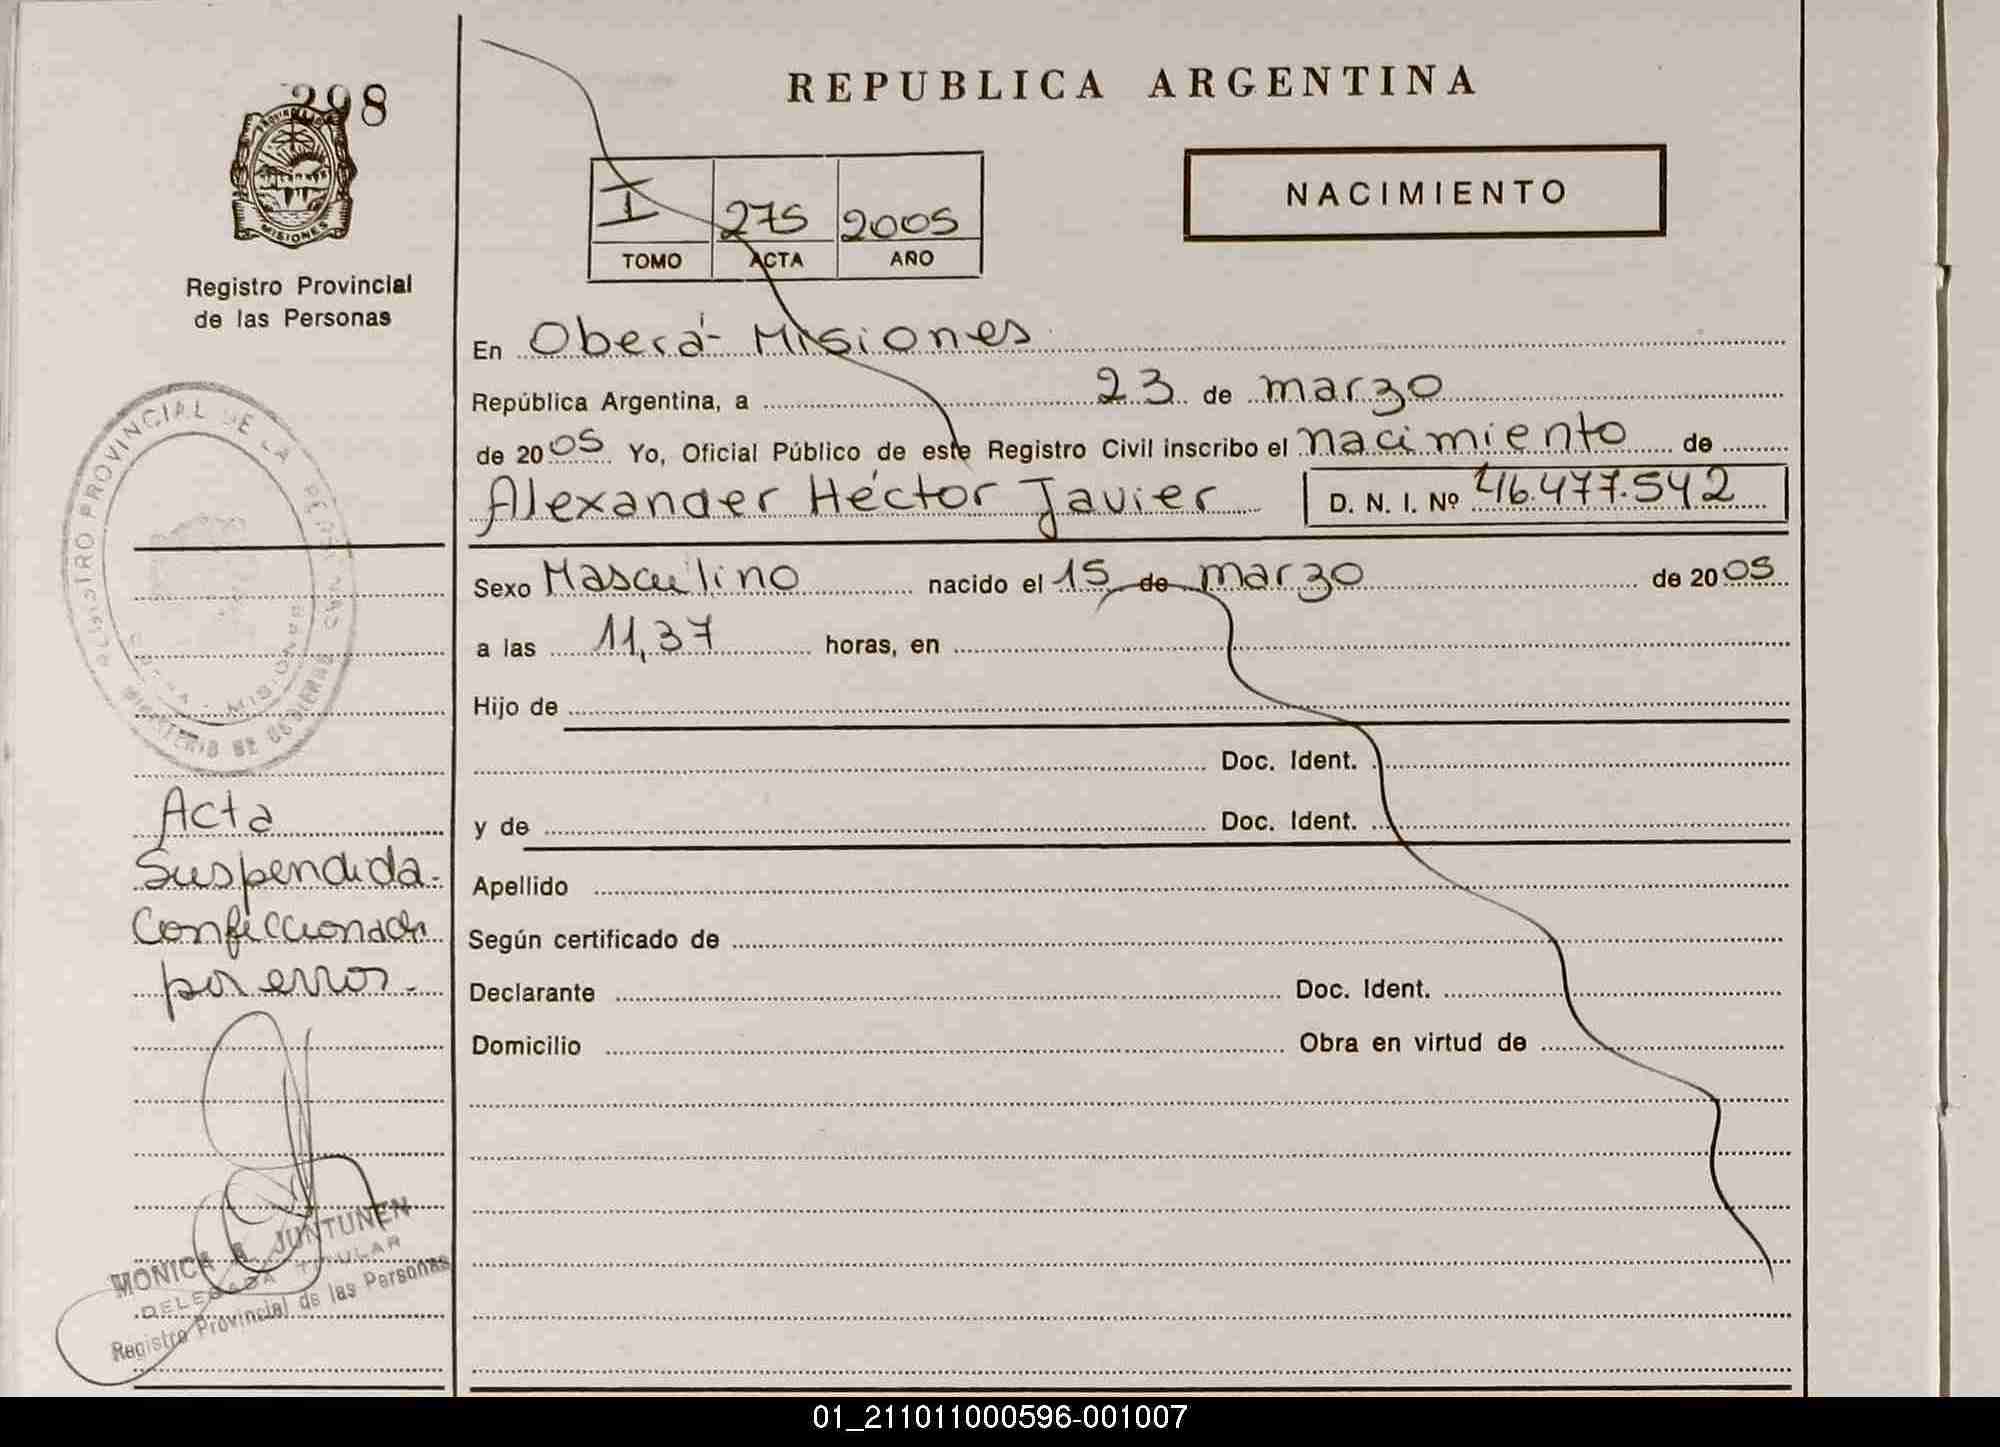 298
PROVINCIA DE
MISIONES
Registro Provincial
de las Personas
REGISTRO PROVINCIAL DE LAS PERSONAS
MINISTERIO DE GOBIERNO
Acta
Suspendida.
Confeccionada
por error.
MONICA JUNTUNEN
DELEGADA TITULAR
Registro Provincial de las Personas
REPUBLICA ARGENTINA
I 275 2005
TOMO ACTA AÑO
NACIMIENTO
En Oberá - Misiones
República Argentina, a 23 de marzo
de 2005 Yo, Oficial Público de este Registro Civil inscribo el nacimiento de
Alexander Héctor Javier D. N. I. Nº 46.477.542
Sexo Masculino nacido el 15 de marzo de 2005
a las 11,37 horas, en
Hijo de
Doc. Ident.
y de Doc. Ident.
Apellido
Según certificado de
Declarante Doc. Ident.
Domicilio Obra en virtud de
01_211011000596-001007